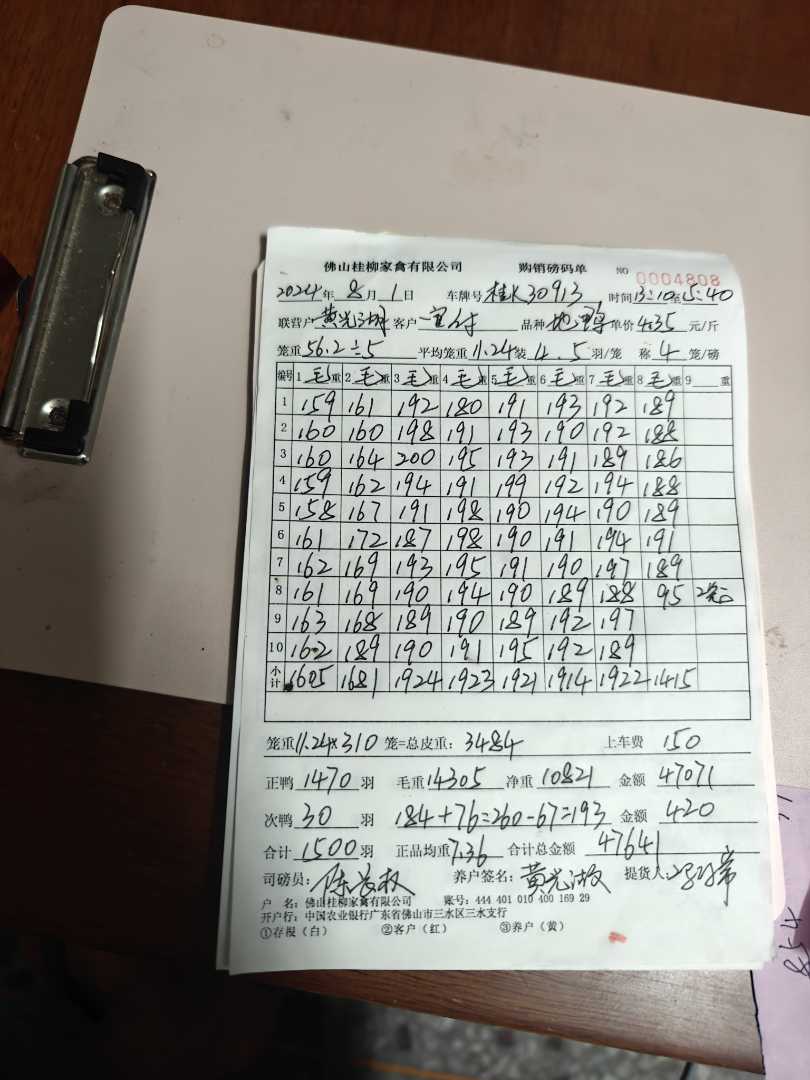 佛山桂柳家禽有限公司 购销磅码单 NO 0004808
2024年 8月 1日 车牌号 桂K30913 时间 13:10至15:40
联营户 黄光湖 客户 品种 地鸭 单价 4.35 元/斤
笼重 56.2÷5 平均笼重 11.24 装 4.5 羽/笼 称 4 笼/磅
编号 1毛重 2毛重 3毛重 4毛重 5毛重 6毛重 7毛重 8毛重 9 重
1 159 161 192 180 191 193 192 189
2 160 160 198 191 193 190 192 188
3 160 164 200 195 193 191 189 186
4 159 162 194 191 199 192 194 188
5 158 167 191 198 190 194 190 189
6 161 172 187 198 190 191 194 191
7 162 169 193 195 191 190 197 189
8 161 169 190 194 190 189 188 95
9 163 168 189 190 189 192 197
10 162 189 190 191 195 192 189
小计 1605 1681 1924 1923 1921 1914 1922 1415
笼重 11.24×310 笼=总皮重: 3484 上车费 150
正鸭 1470 羽 毛重 14305 净重 10821 金额 47071
次鸭 30 羽 184+76=260-67=193 金额 420
合计 1500 羽 正品均重 7.36 合计总金额 47641
司磅员: 养户签名: 黄光湖 提货人
户 名: 佛山桂柳家禽有限公司 账号: 444 401 010 400 169 29
开户行: 中国农业银行广东省佛山市三水区三水支行
①存根(白) ②客户(红) ③养户(黄)